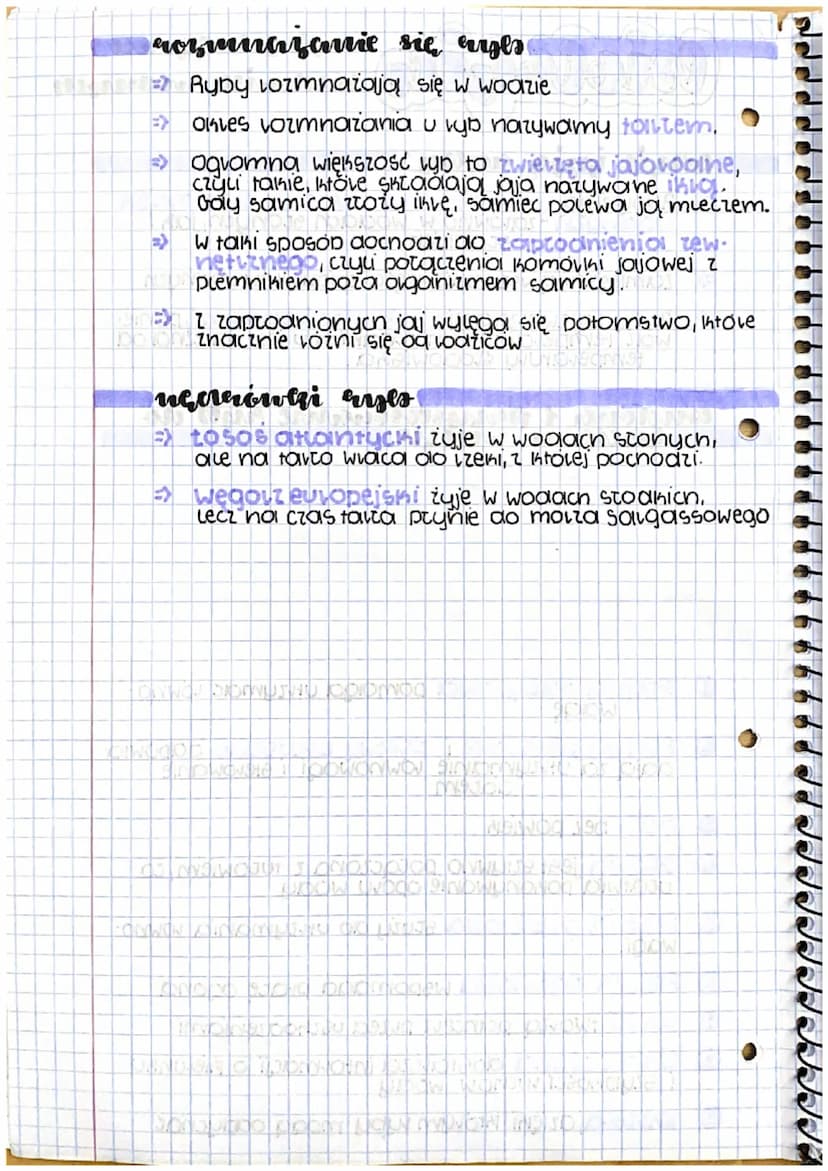 rozmnażanie się ryb
=> Ryby rozmnażają się w wodzie
=> okres rozmnażania u ryb nazywamy tarłem.
=> Ogromna większość ryb to zwierzęta jajorodne,
czyli takie, które składają jaja nazywane ikrą.
Gdy samica złoży ikrę, samiec polewa ją mleczem.
=> W taki sposób dochodzi do zapłodnienia zew-
nętrznego, czyli połączenia komórki jajowej z
plemnikiem poza organizmem samicy.
=> z zapłodnionych jaj wylęga się potomstwo, które
znacznie różni się od rodziców
wędrówki ryb
=> łosoś atlantycki żyje w wodach słonych,
ale na tarło wraca do rzeki, z której pochodzi.
=> węgorz europejski żyje w wodach słodkich,
lecz na czas tarła płynie do morza Sargassowego